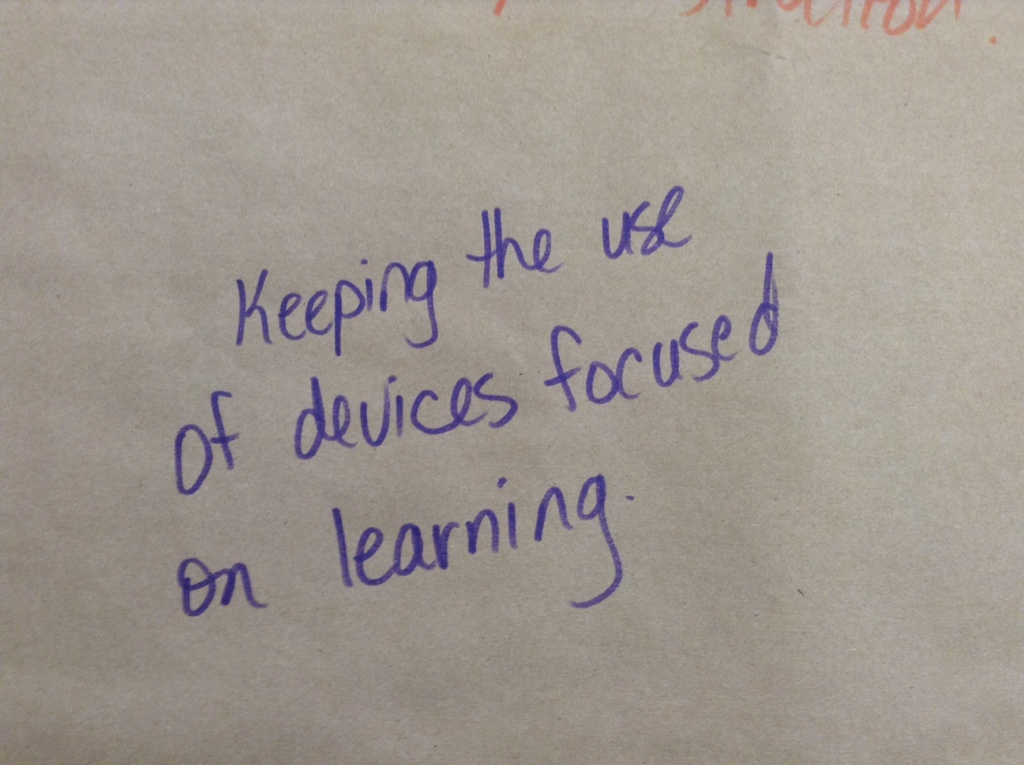 Keeping the use
of devices focused
on learning.